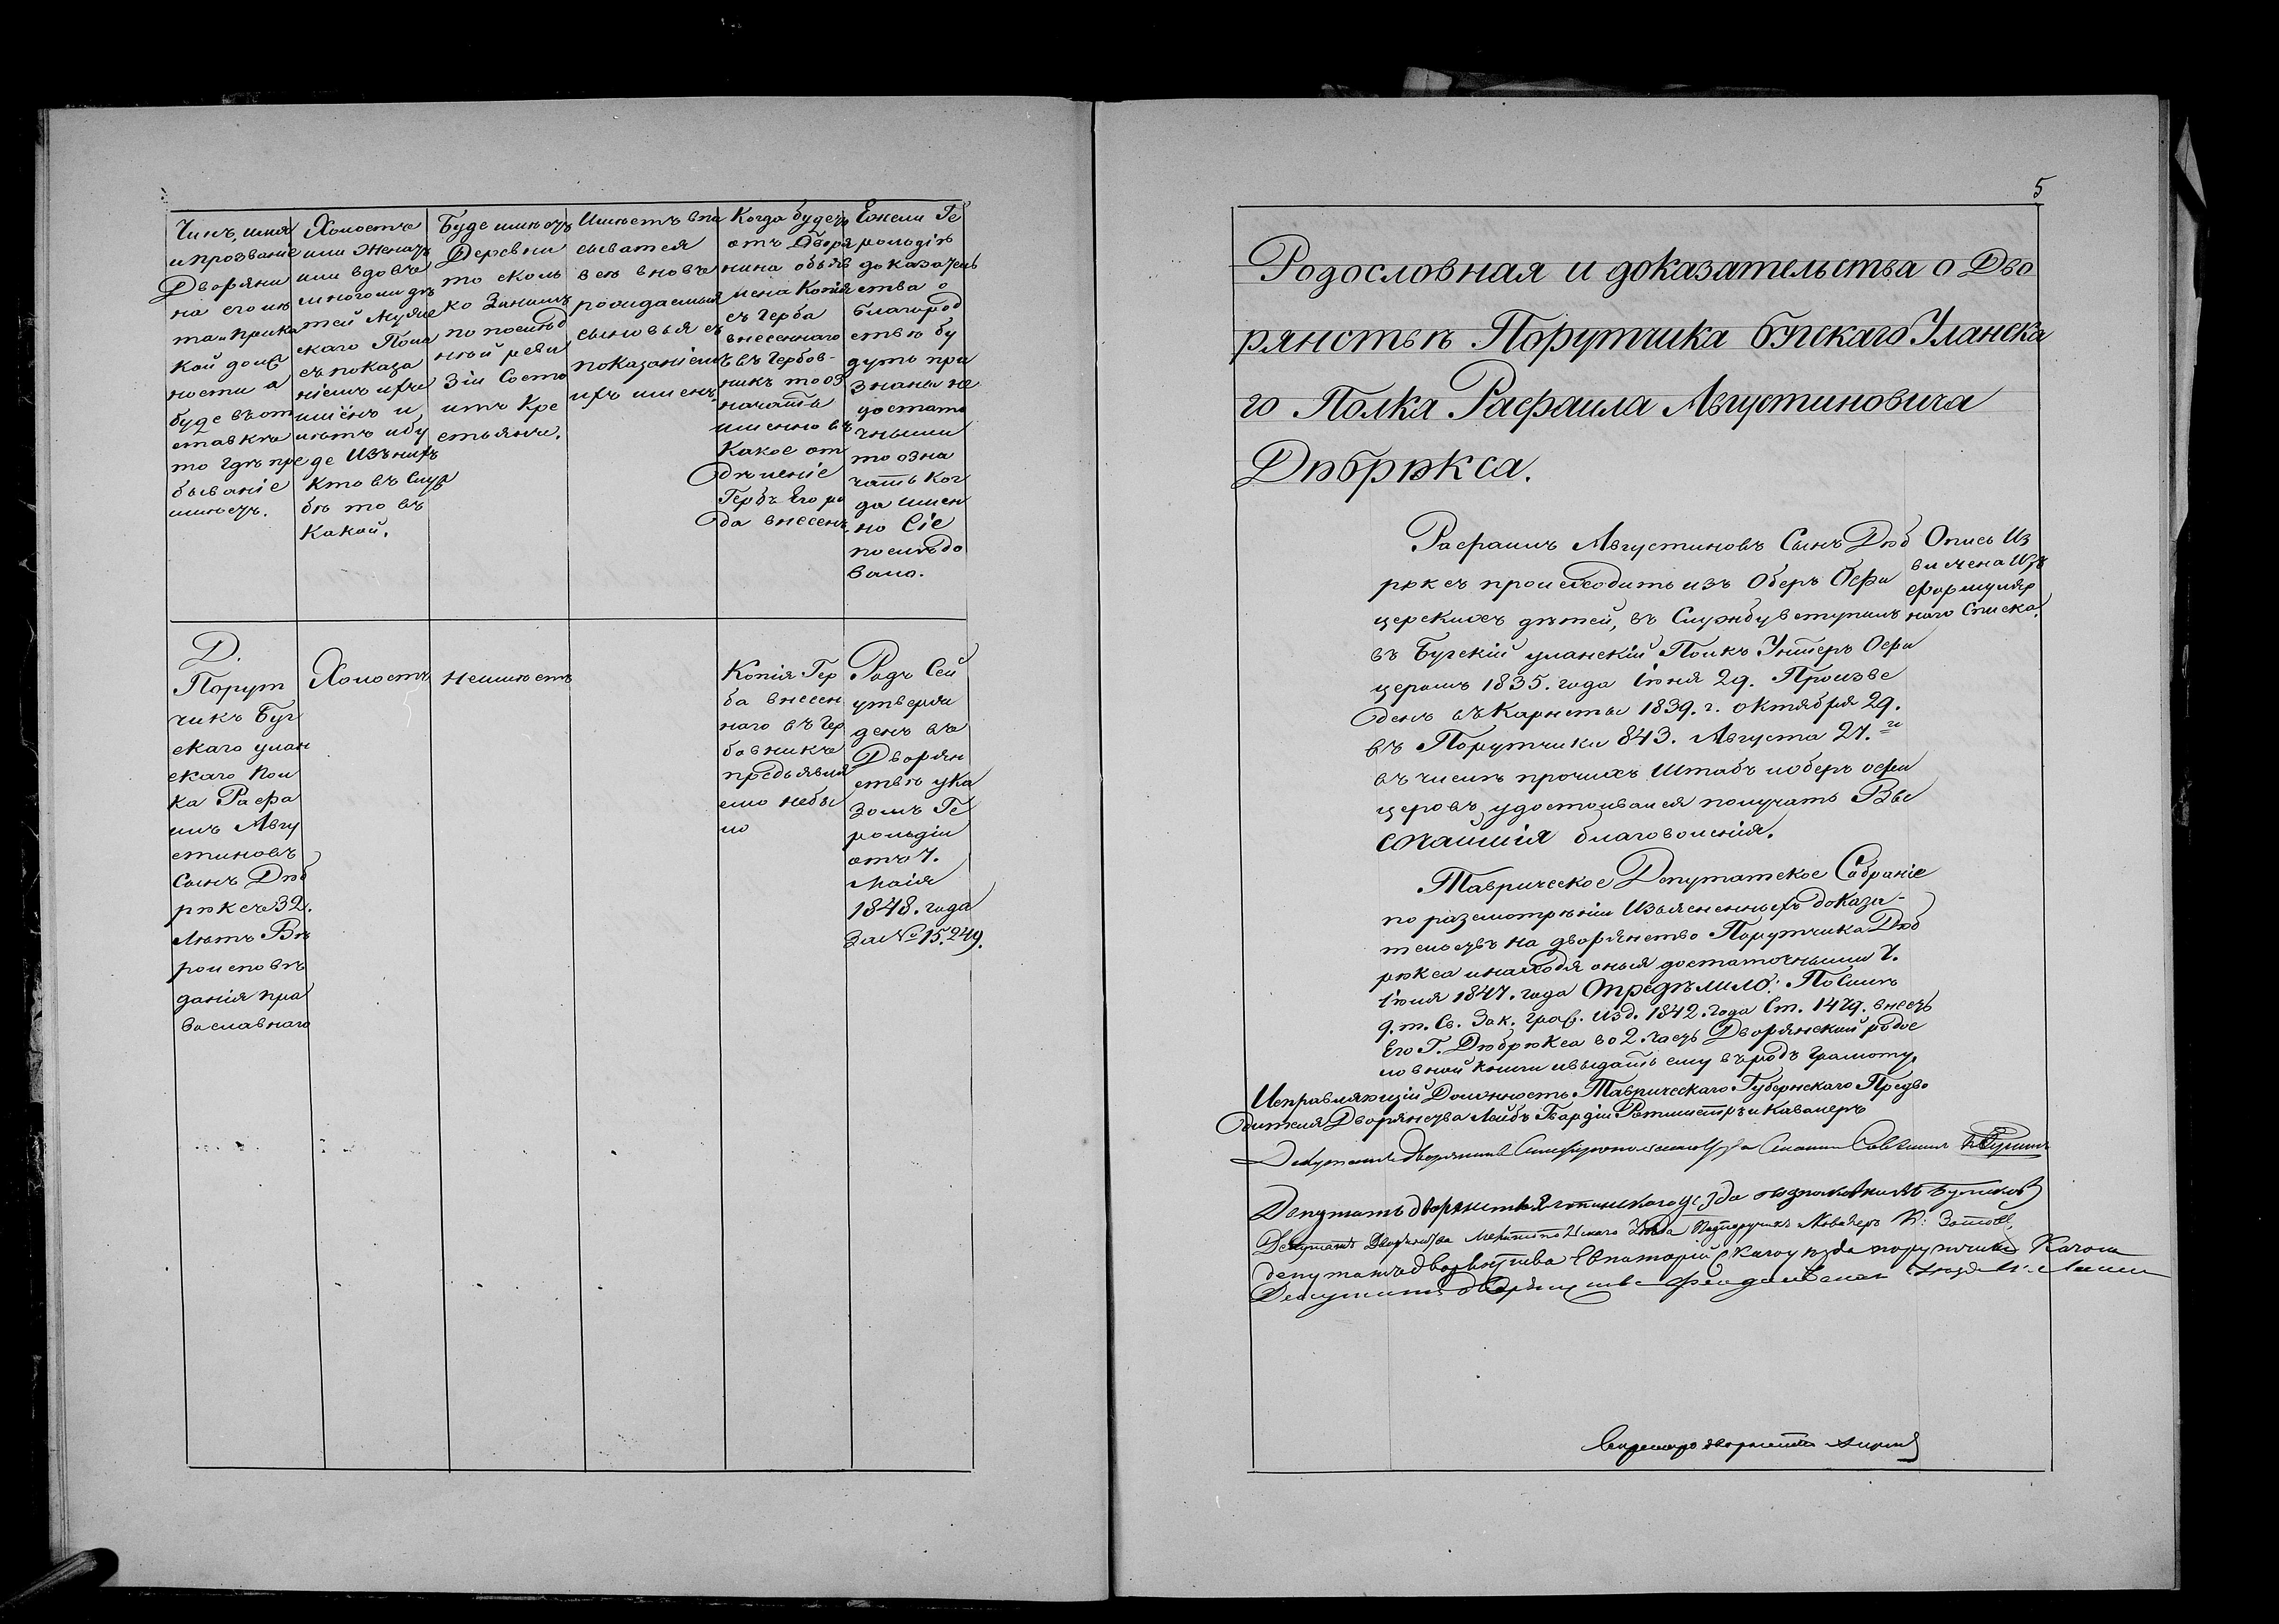 Чинъ, имя
и прозваніе
Дворяни
на его лѣ
та и при ка
кой долж
ности а
буде въ от
ставкѣ
то гдѣ пре
бываніе
имѣетъ.
Холостъ
или женатъ
или вдовъ
много ли дѣ
тей Мужес
каго Пола
съ показа
ніемъ ихъ
имёнъ и
лѣтъ и бу
де Изъ нихъ
кто въ Служ
бѣ то въ
какой.
Буде имѣетъ
Деревни
то сколь
ко За нимъ
по послѣд
ньй реви
Зіи Состо
итъ Кре
стьянъ.
Имѣетъ впи
сыватся
въ сіе вновь
рождаемыя
сыновья съ
показаніемъ
ихъ именъ.
Когда будетъ
отъ Дворя
нина объяв
лена Копія
съ Герба
внесеннаго
въ Гербов-
никъ то оз
начать
именно въ
какое от
дѣленіе
Гербъ Его ро
да внесенъ.
Ежели Ге
рольдіею
доказатель
ства о
благород
ствѣ бу
дутъ при
знаны не
достато
чными
то озна
чать Ког
да имен
но Сіе
послѣдо
вало.
Д.
Порут
чикъ Буг
скаго улан
скаго Пол
ка Рафа
илъ Авгу
стиновъ
Сынъ Дюб
рюксъ 32.
Лѣтъ Вѣ
роисповѣ
данія пра
вославнаго
Холостъ
Неимѣетъ
Копія Гер
ба внесен
наго въ Гер
бовникъ
предъявля
емо небы
ло
Родъ Сей
утверж
денъ въ
Дворян
ствѣ ука
зомъ Ге
рольдіи
отъ 7.
Маія
1848. года
За № 15.249.
5
Родословная и доказательства о Дво
рянствѣ Порутчика Бугскаго Уланска
го Полка Рафаила Августиновича
Дюбрюкса.
Рафаилъ Августиновъ Сынъ Дюб
рюксъ происходитъ изъ Оберъ Офи
церскихъ дѣтей, въ Службу вступилъ
въ Бугскій уланскій Полкъ Унтеръ Офи
церомъ 1835. года Іюня 29. Произве
денъ въ Карнеты 1839. г. октября 29.
въ Порутчики 843. Августа 27.го
въ числѣ прочихъ Штабъ и оберъ офи
церовъ удостоивался получать Вы
сочайшія благоволенія.
Опись Из
влечена Изъ
формуляр
наго Списка.
Таврическое Депутатское Собраніе
по разсмотрѣніи Изъясненныхъ доказа-
тельствъ на дворянство Порутчика Дюб
рюкса и находя оныя достаточными 7.
Іюля 1847. года Опредѣлило: По Силѣ
9. т. Св. Зак. граж. изд. 1842. года Ст. 1479. внесть
Его Г. Дюбрюкса во 2. часть Дворянской родос
ловной книги и выдать ему въ родъ грамоту.
Исправляющій Должность Таврическаго Губернскаго Предво
дителя Дворянства Лейбъ Гвардіи Ротмистръ и Кавалеръ
Депутатъ Дворянства Симферопольскаго
Депутатъ дворянства Ялтинскаго уезда подполковникъ
Депутатъ Дворянства Мелитопольскаго Уѣзда Подпоручикъ и Кавалеръ
депутатъ дворянства Евпаторійскаго уѣзда порутчикъ
Депутатъ дворянства Феодосійскаго
Секретарь дворянства